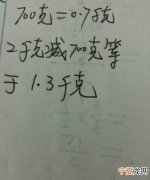 700克=0.7千克
2千克减700克等
于1.3千克
宁夏龙网